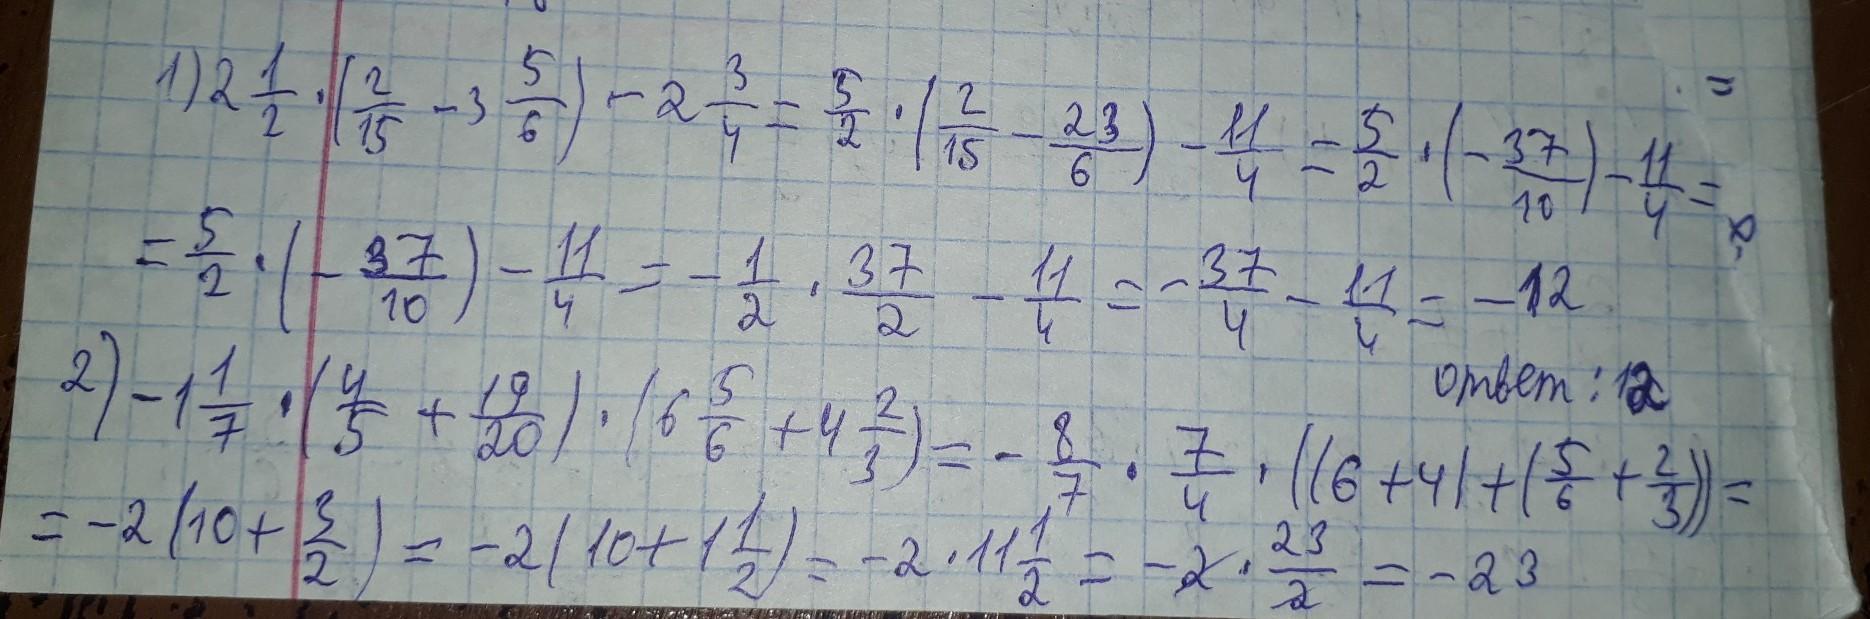 1) 2 1/2 · (2/15 - 3 5/6) - 2 3/4 = 5/2 · (2/15 - 23/6) - 11/4 = 5/2 · (- 37/10) - 11/4 =
= 5/2 · (- 37/10) - 11/4 = - 1/2 · 37/2 - 11/4 = - 37/4 - 11/4 = -12
ответ: 12
2) -1 1/7 · (4/5 + 19/20) · (6 5/6 + 4 2/3) = - 8/7 · 7/4 · ((6+4)+(5/6 + 2/3)) =
= -2(10 + 3/2) = -2(10+1 1/2) = -2 · 11 1/2 = -2 · 23/2 = -23